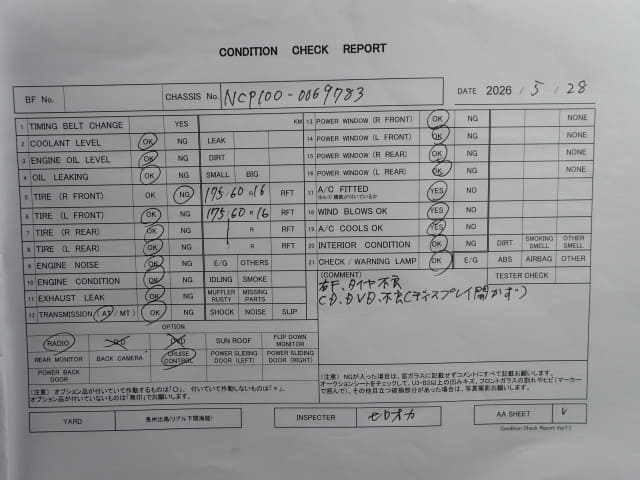 CONDITION CHECK REPORT
BF No.
CHASSIS No. NCP100-0069783
DATE 2026 / 5 / 28
1 TIMING BELT CHANGE YES KM
2 COOLANT LEVEL OK NG LEAK
3 ENGINE OIL LEVEL OK NG DIRT
4 OIL LEAKING OK NG SMALL BIG
5 TIRE (R FRONT) OK NG 175.60 R16 RFT
6 TIRE (L FRONT) OK NG 175.60 R16 RFT
7 TIRE (R REAR) OK NG R RFT
8 TIRE (L REAR) OK NG R RFT
9 ENGINE NOISE OK NG E/G OTHERS
10 ENGINE CONDITION OK NG IDLING SMOKE
11 EXHAUST LEAK OK NG MUFFLER RUSTY MISSING PARTS
12 TRANSMISSION (AT / MT) OK NG SHOCK NOISE SLIP
13 POWER WINDOW (R FRONT) OK NG NONE
14 POWER WINDOW (L FRONT) OK NG NONE
15 POWER WINDOW (R REAR) OK NG NONE
16 POWER WINDOW (L REAR) OK NG NONE
17 A/C FITTED YES NG
18 WIND BLOWS OK YES NG
19 A/C COOLS OK YES NG
20 INTERIOR CONDITION OK NG DIRT SMOKING SMELL OTHER SMELL
21 CHECK / WARNING LAMP OK E/G ABS AIRBAG OTHER
TESTER CHECK
(COMMENT)
右F.タイヤ不良
CD.DVD.不良(ディスプレイ開かず)
OPTION
RADIO CD DVD SUN ROOF FLIP DOWN MONITOR
REAR MONITOR BACK CAMERA CRUISE CONTROL POWER SLIDING DOOR (LEFT) POWER SLIDING DOOR (RIGHT)
POWER BACK DOOR
(注意) オプション品が付いていて作動するものは「○」、付いていて作動しないものは「×」、
オプション品が付いていないものは「無印」でお願いします。
(注意) NGが入った項目は、窓ガラスに記載せずコメントにすべて記載お願いします。
オークションシートをチェックして、U3・B3以上の凹みキズ、フロントガラスの割れやヒビ(マーカー
で囲んで)、その他目立つ破損部分があった場合は、写真撮影お願いします。
YARD
INSPECTER
AA SHEET
Condition Check Report Ver11